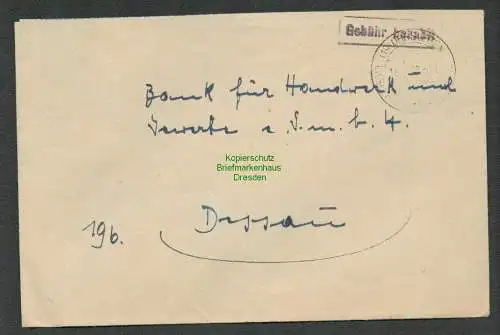 Gebühr bezahlt
Bank für Handwerk und
Gewerbe e.G.m.b.H.
Kopierschutz
Briefmarkenhaus
Dresden
Dessau
19b.